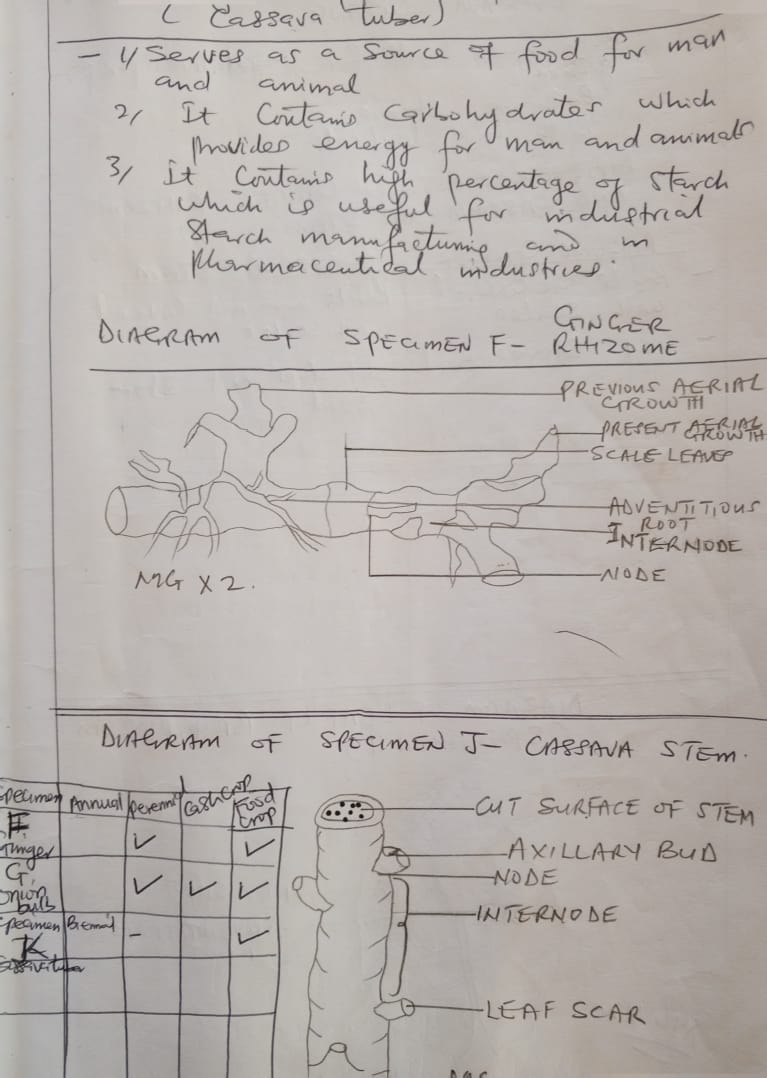 ( Cassava tuber)
- 1/ Serves as a source of food for man
and animal
2/ It contains carbohydrates which
provides energy for man and animals
3/ it contains high percentage of starch
which is useful for industrial
starch manufacturing and in
pharmaceutical industries.
DIAGRAM OF SPECIMEN F- GINGER
RHIZOME
PREVIOUS AERIAL
GROWTH
PRESENT AERIAL
GROWTH
SCALE LEAVES
ADVENTITIOUS
ROOT
INTERNODE
NODE
MG X 2.
DIAGRAM OF SPECIMEN J- CASSAVA STEM.
Specimen Annual perennial Cash crop Food crop
F
Ginger ✓ ✓
G
Onion bulb ✓ ✓ ✓
Specimen Biennial - ✓
K
CUT SURFACE OF STEM
AXILLARY BUD
NODE
INTERNODE
LEAF SCAR